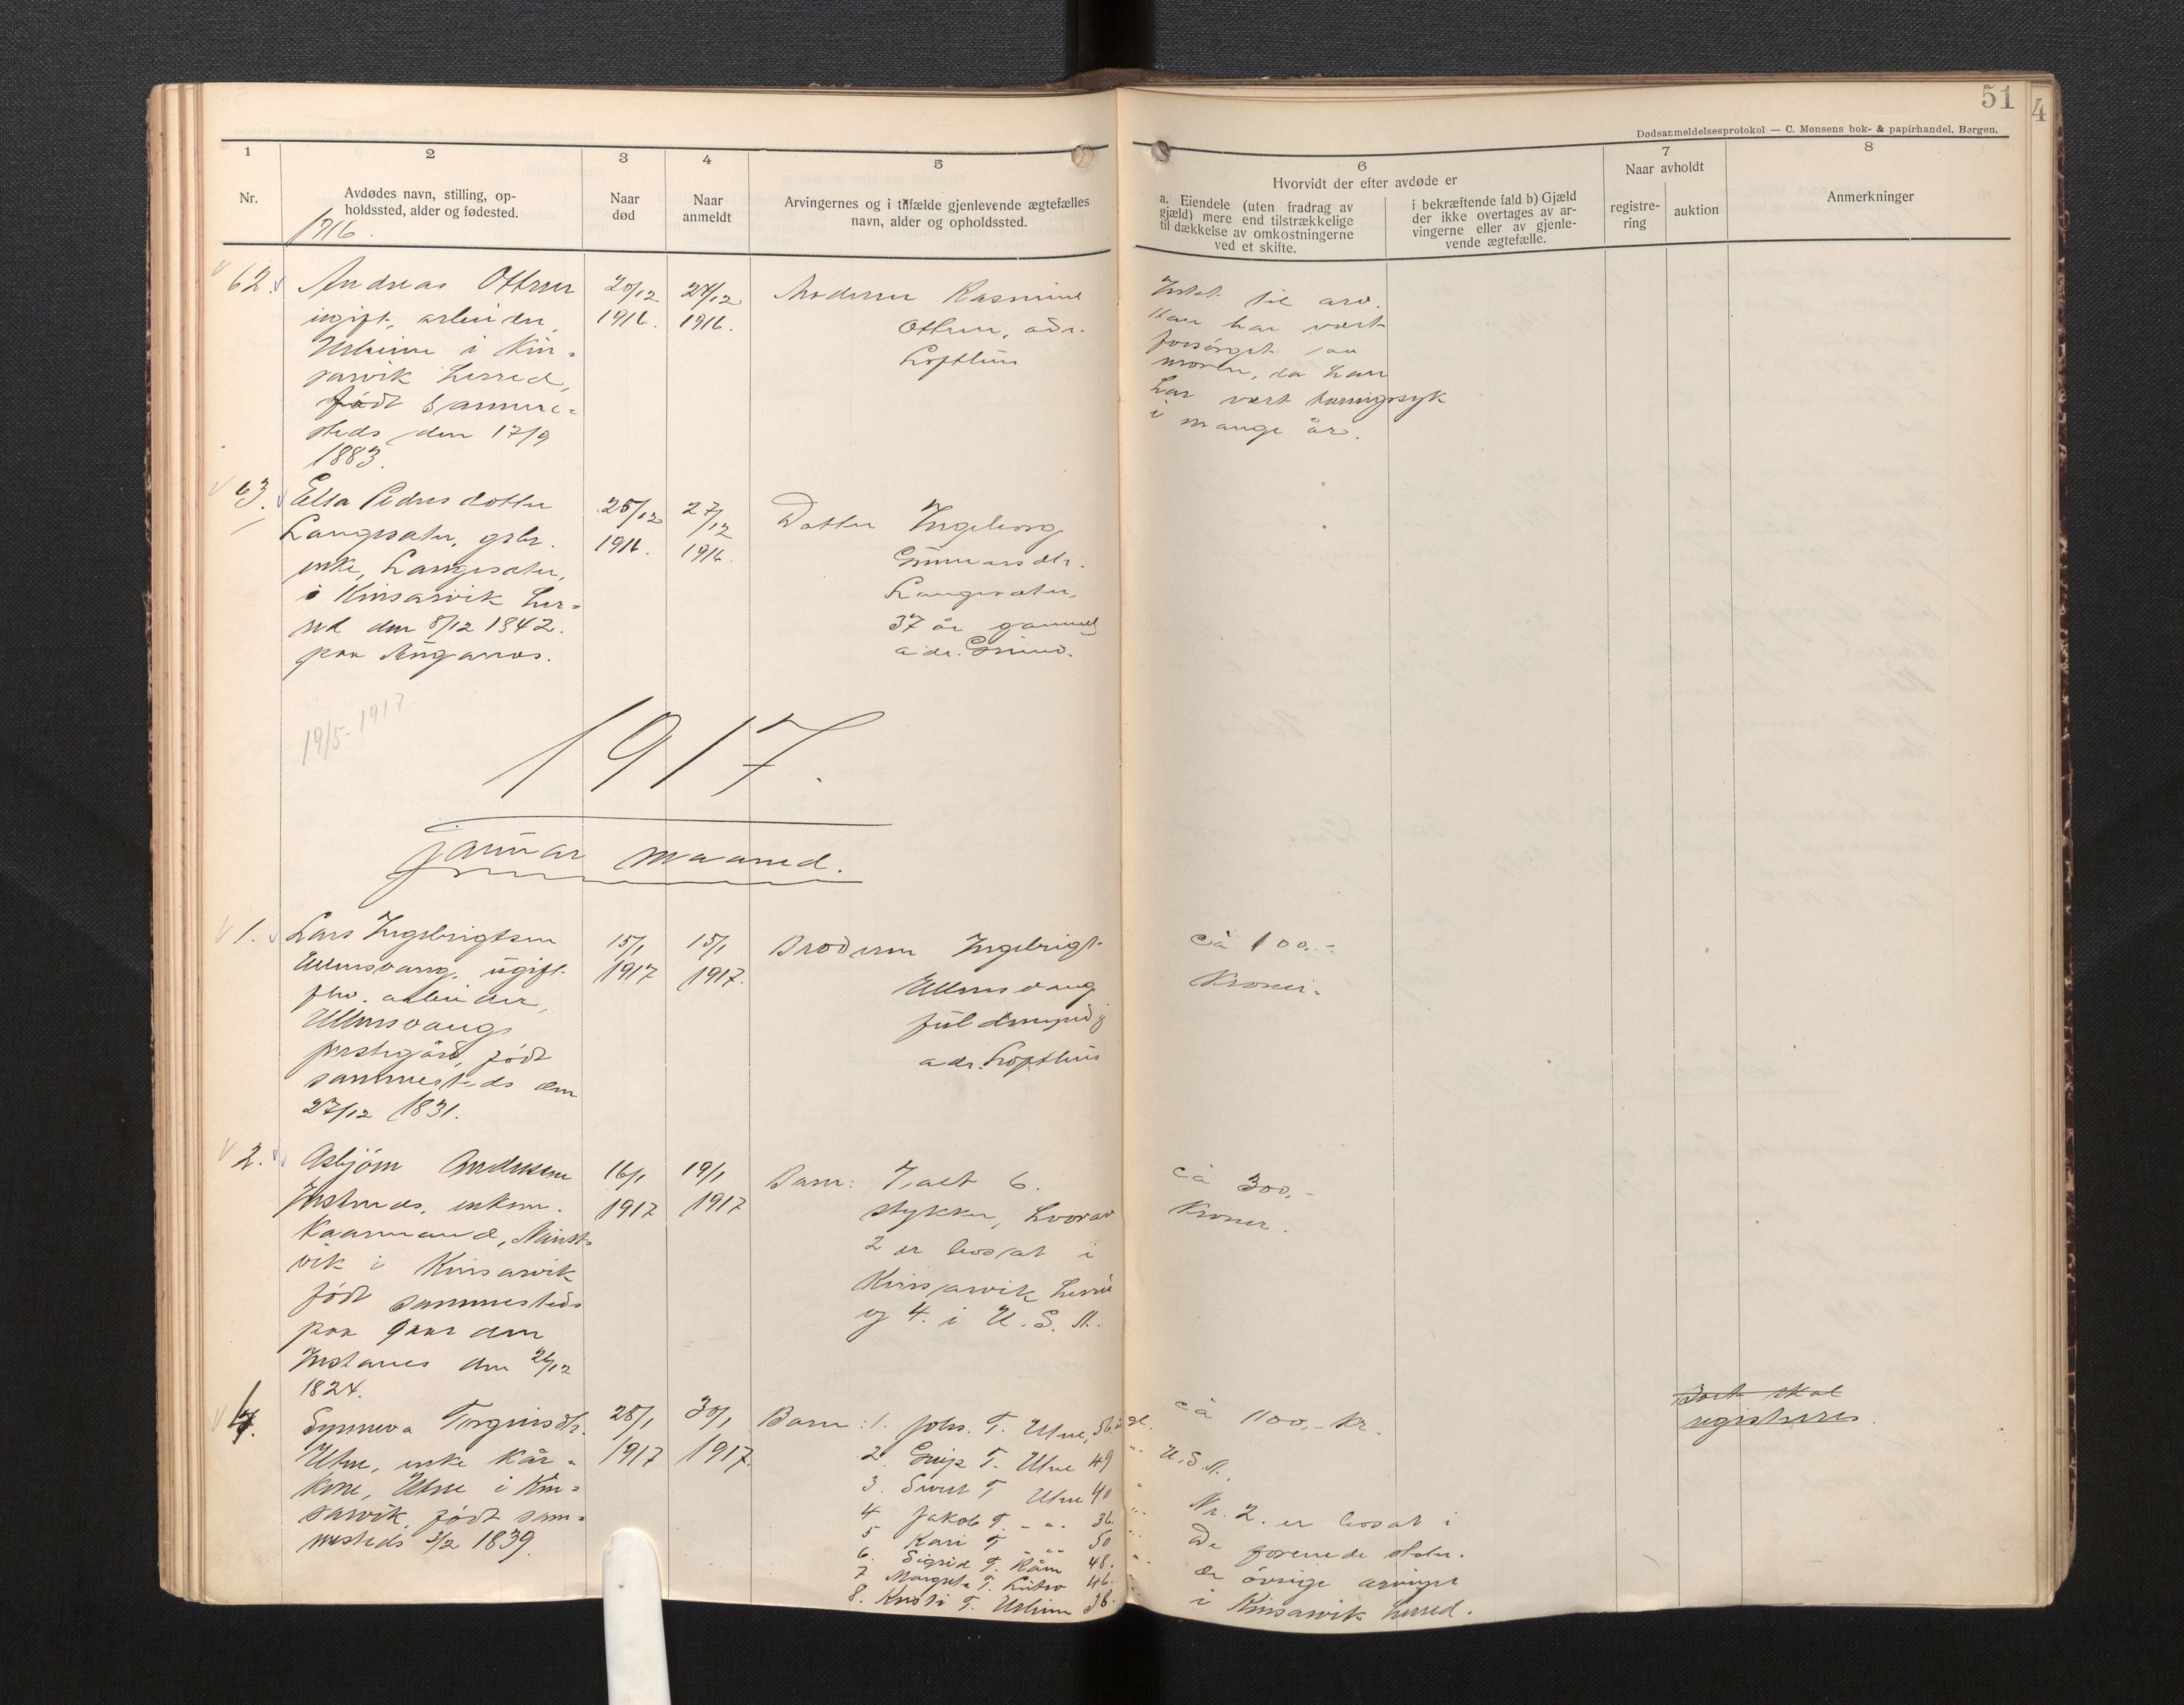 51
4
Dødsanmeldelsesprotokol — C. Monsens bok- & papirhandel, Bergen.
1
Nr.
2
Avdødes navn, stilling, op-
holdssted, alder og fødested.
1916.
3
Naar
død
4
Naar
anmeldt
5
Arvingernes og i tilfælde gjenlevende ægtefælles
navn, alder og opholdssted.
6
Hvorvidt der efter avdøde er
a. Eiendele (uten fradrag av
gjæld) mere end tilstrækkelige
til dækkelse av omkostningerne
ved et skifte.
i bekræftende fald b) Gjæld
der ikke overtages av ar-
vingerne eller av gjenle-
vende ægtefælle.
7
Naar avholdt
registre-
ring
auktion
8
Anmerkninger
62.
Andreas
ugift, arbeider,
i Kin-
sarvik herred,
født samme-
steds den 17/9
1883.
20/12
1916.
24/12
1916.
Moderen Rasmine
adr.
Lofthus
Intet til arv.
Han har vært
forsørget av
moren, da han
har vært
i mange år.
63.
Elsa Pedersdotter
Langesater, gbr.
enke, Langesater,
i Kinsarvik her-
red den 8/12 1842.
paa
25/12
1916.
27/12
1916.
Datter Ingeborg
Gunnarsdtr.
Langesater,
37 år gammel
adr. Grimo.
19/5-1917.
1917.
januar maaned.
1.
Lars Ingebrigtsen
Ullensvang, ugift
fhv. arbeider,
Ullensvangs
prestegård, født
sammesteds den
27/12 1831.
15/1
1917
15/1
1917.
Broderen Ingebrigt
Ullensvang
fuldmyndig
adr. Lofthus
ca 100.-
Kroner.
2.
Asbjörn Andersen
Instanes, enkem.
Kaarmand,
vik i Kinsarvik
født sammesteds
paa gaarden
Instanes den 26/12
1824.
16/1
1917
19/1
1917
Barn: I alt 6.
stykker, hvorav
2 er bosat i
Kinsarvik herred
og 4. i U. S. A.
ca 300,-
Kroner.
Synneva Torgeirsdtr.
Utne, enke kår-
kone, Utne i Kin-
sarvik, født sam-
mesteds 3/2 1839.
28/1
1917
30/1
1917.
Barn: 1. Johs. T. Utne, 56. år gl.
2. T. Utne 49 " U.S.A.
3. Sivert T Utne 40 "
4 Jakob T. - " - 36. "
5 Kari T. " 50 "
6. Sigrid T. 48. "
7 Margreta T. 46. "
8. Kristi T. 38. "
ca 1100,- Kr.
Nr. 2. er bosat i
De forenede stater.
De övrige arvinger
i Kinsarvik herred.
Bort skal
registreres.